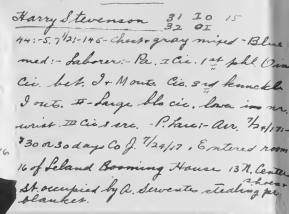 Harry Stevenson 31 I O 15
32 O I
44:-5.7 1/2:-145-Chest gray mixed-Blue
med:-Laborer:-Pa. I Cic. 1st phl
Cic. bet. I & Monte Cic. 3rd knuckle
I nr. III-Large blo cic. lower in nr.
wrist III Cic & arc. -P. Larc:-Arr. 7/29/17:-
$30 or 30 days Co J. 7/29/17. Entered room
16 of Leland Booming House 13 N. Center
St. occupied by A. Serventer stealing pr.
shoes &
blanket.